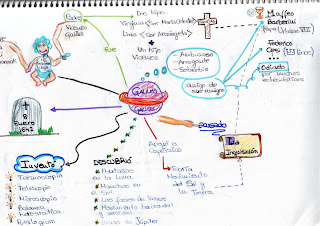 Padre
Vicenzo
Galilei
fue
Dr. hijo
Virginia (Sor María Celeste)
Livia (Sor Arcángela)
+
Un hijo
Vicenzo
Autocrata
Arrogante
Soberbio
amigo de
sus amigos
Maffeo
Barberini
(Papa Urbano VIII)
Federico
Cesi (El lince)
Odiado
por muchos
eclesiásticos
GALILEO
GALILEI
acusado
La
Inquisición
Apoyó a
Copérnico
Teoría
Movimiento
del Sol y
la Tierra
8
Enero
1642
Inventó
Termoscopio
Telescopio
Microscopio
Balanza
hidrostática
DESCUBRIÓ
Montañas
en la Luna
Manchas en
el Sol
Las fases de Venus
Movimiento horizontal
y vertical
Lunas de Júpiter